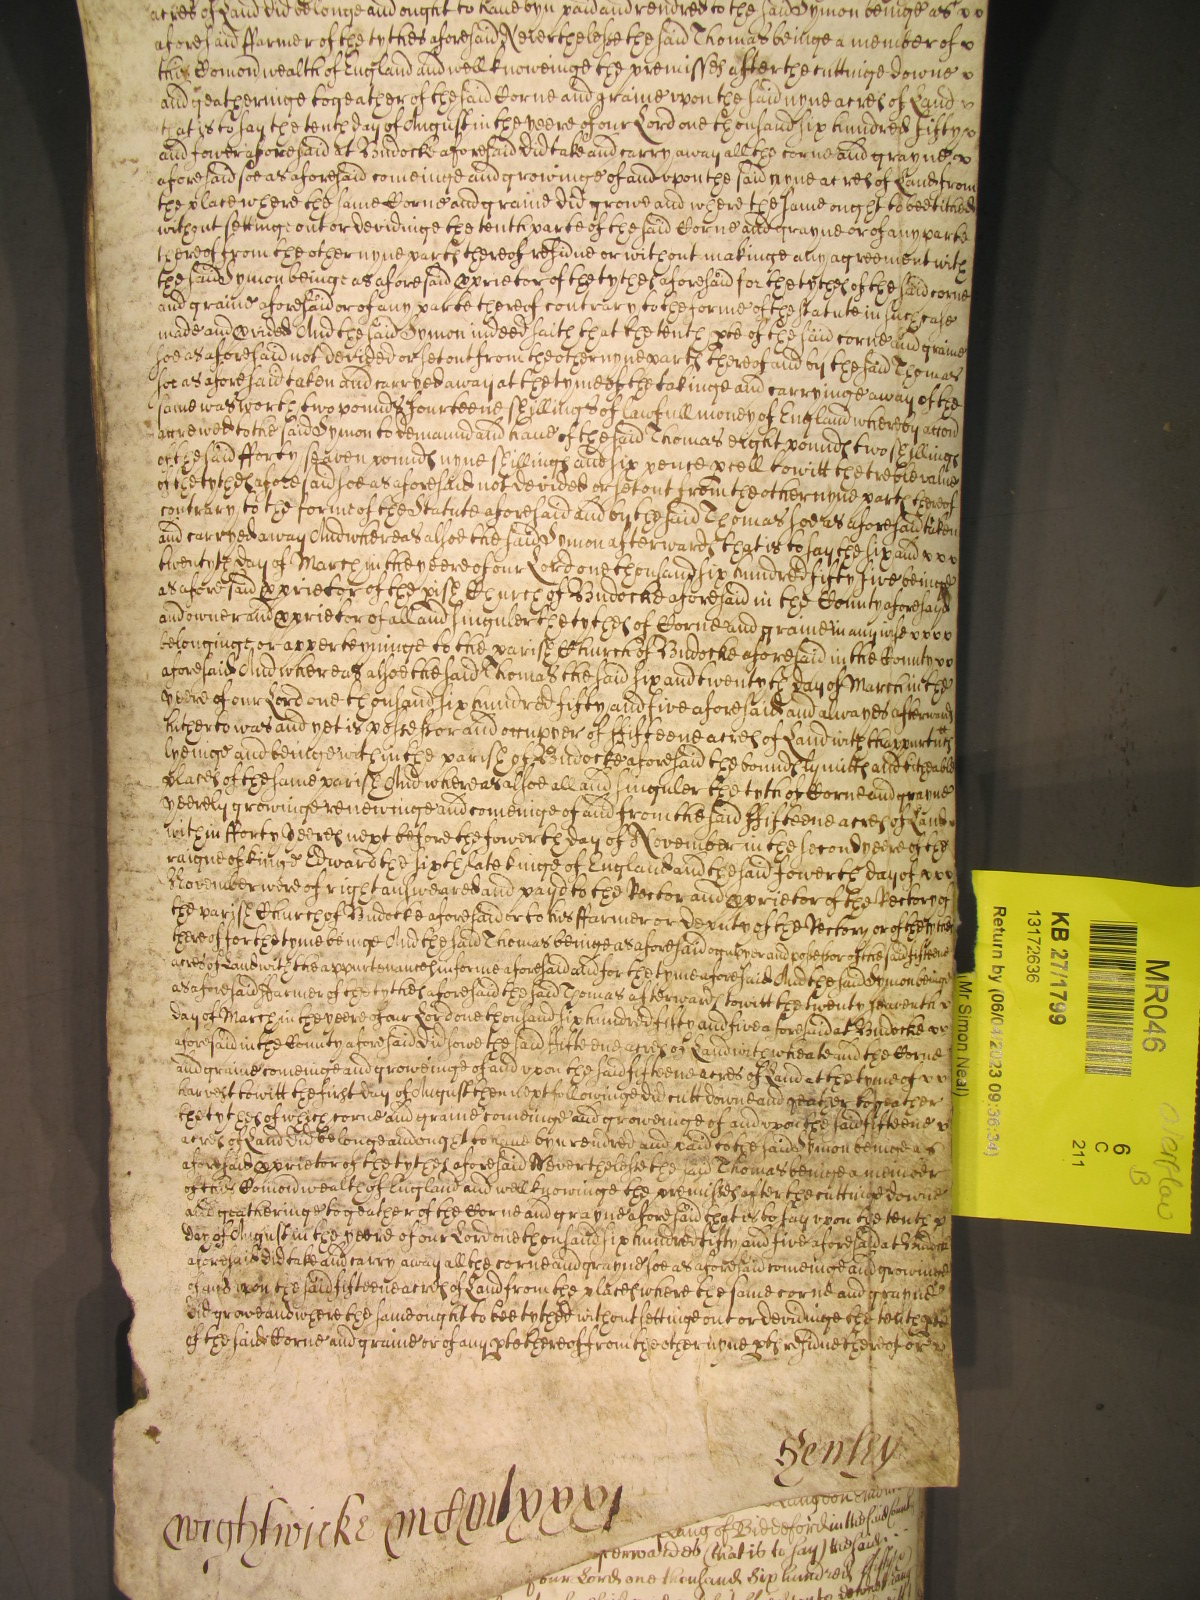 acres of Land did belonge and ought to have byn paid and rendred to the said Symon beinge as
aforesaid ffarmer of the tythes aforesaid Neverthelesse the said Thomas beinge a member of
this Comonwealth of England and well knoweinge the premisses after the cuttinge downe
and geatheringe togeather of the said Corne and graine upon the said nyne acres of Land
that is to say the tenth day of August in the yeere of our Lord one thousand six hundred fifty
and fower aforesaid at Budocke aforesaid did take and carry away all the corne and grayne
aforesaid soe as aforesaid comeinge and growinge of and upon the said nyne acres of Land from
the place where the same Corne and graine did growe and where the same ought to bee tithed
without settinge out or devidinge the tenth parte of the said Corne and grayne or of any parte
thereof from the other nyne parts thereof residue or without makinge any agreement with
the said Symon beinge as aforesaid pprietor of the tythes aforesaid for the tythes of the said corne
and graine aforesaid or of any parte thereof contrary to the forme of the statute in such case
made and pvided And the said Symon indeed saith that the tenth pte of the said corne and graine
soe as aforesaid not devided or set out from the other nyne parts thereof and by the said Thomas
soe as aforesaid taken and carryed away at the tyme of the takinge and carryinge away of the
same was worth two pounds fourteene shillings of lawfull money of England whereby accion
accrewed to the said Symon to demannd and have of the said Thomas eight pounds two shillings
of the said fforty seaven pounds nyne shillings and six pence pcell to witt the treble value
of the tythes aforesaid soe as aforesaid not devided or set out from the other nyne parts thereof
contrary to the forme of the Statute aforesaid and by the said Thomas soe as aforesaid taken
and carryed away And whereas alsoe the said Symon afterwards that is to say the six and
twentyth day of March in the yeere of our Lord one thousand six hundred fifty five beinge
as aforesaid pprietor of the pish Church of Budocke aforesaid in the County aforesaid
and owner and pprietor of all and singuler the tythes of Corne and graine in any wise
belonginge or apperteyninge to the parish Church of Budocke aforesaid in the County
aforesaid And whereas alsoe the said Thomas the said six and twentyth day of March in the
yeere of our Lord one thousand six hundred fifty and five aforesaid and alwayes afterwards
hitherto was and yet is possessor and occupyer of ffifteene acres of Land with thappurtences
lyeinge and beinge within the parish of Budocke aforesaid the bounds lymitts and titheable
places of the same parish And whereas alsoe all and singuler the tyths of Corne and grayne
yeerely growinge renewinge and comeinge of and from the said ffifteene acres of Land
within fforty yeeres next before the fowerth day of November in the second yeere of the
raigne of Kinge Edward the sixth late Kinge of England and the said fowerth day of
November were of right answeared and payd to the Rector and pprietor of the Rectory of
the parish Church of Budocke aforesaid or to his ffarmer or deputy of the Rectory or of the tythes
thereof for the tyme beinge And the said Thomas beinge as aforesaid occupyer and possessor of the said fifteene
acres of Land with the appurtenances in forme aforesaid and for the tyme aforesaid And the said Symon beinge
as aforesaid ffarmer of the tythes aforesaid the said Thomas afterwards to witt the twenty seaventh
day of March in the yeere of our Lord one thousand six hundred fifty and five aforesaid at Budocke
aforesaid in the County aforesaid did sowe the said fifteene acres of Land with wheate and the Corne
and graine comeinge and groweinge of and upon the said fifteene acres of Land at the tyme of
harvest to witt the first day of August then next followinge did cutt downe and geather togeather
the tythes of which corne and graine comeinge and groweinge of and upon the said fifteene
acres of Land did belonge and ought to have byn rendred and paid to the said Symon beinge as
aforesaid pprietor of the tythes aforesaid Neverthelesse the said Thomas beinge a member
of this Comonwealth of England and well knowinge the premisses after the cuttinge downe
and geatheringe togeather of the Corne and grayne aforesaid that is to say upon the tenth
day of August in the yeere of our Lord one thousand six hundred fifty and five aforesaid at Budocke
aforesaid did take and carry away all the corne and grayne soe as aforesaid comeinge and growinge
of and upon the said fifteene acres of Land from the place where the same corne and grayne
did growe and where the same ought to bee tythed without settinge out or devidinge the tenth pte
of the said Corne and graine or of any pte thereof from the other nyne pts residue thereof or
Henley
Wightwicke
Lang of Biddeford in the said County
afterwards (that is to say) the said
our Lord one thousand six hundred fifty
MR046
KB 27/1799
13172636
Return by (06/04/2023 09:36:34)
(Mr Simon Neal)
6
C
211
B